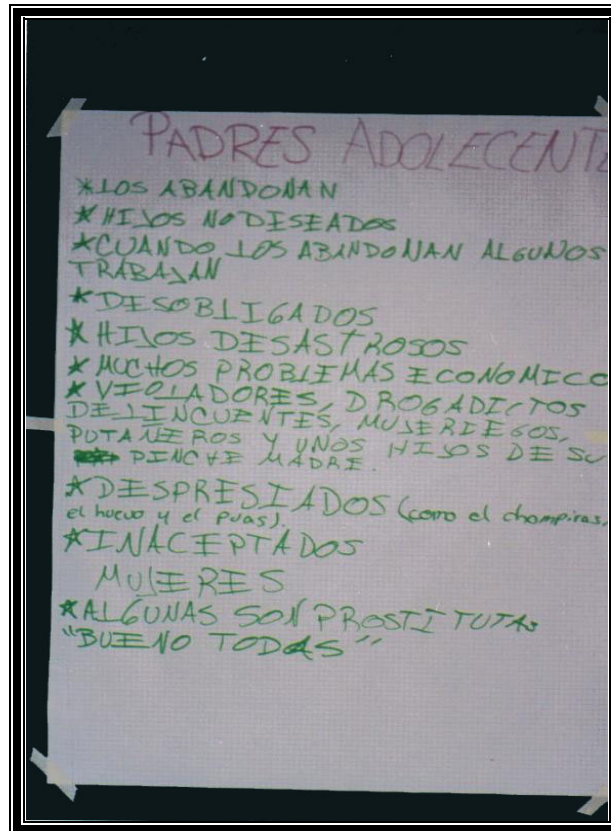 PADRES ADOLECENTE
*LOS ABANDONAN
*HIJOS NO DISEADOS
*CUANDO LOS ABANDONAN ALGUNOS
TRABAJAN
*DESOBLIGADOS
*HIJOS DESASTROSOS
*MUCHOS PROBLEMAS ECONOMICO
*VIOLADORES, DROGADICTOS
DELINCUENTES, MUJERIEGOS,
PUTAÑEROS Y UNOS HIJOS DE SU
PINCHE MADRE.
*DESPRESIADOS (como el chompiras,
el huevo y el puas).
*INACEPTADOS
MUJERES
*ALGUNAS SON PROSTITUTAS
"BUENO TODAS"